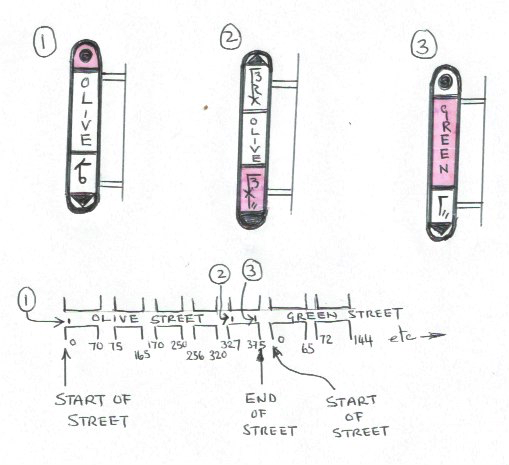 1
2
3
OLIVE
OLIVE
GREEN
1
2
3
OLIVE STREET
GREEN STREET
0 70 75 165 170 250 256 320 327 375 0 65 72 144 etc
START OF
STREET
END
OF
STREET
START
OF
STREET